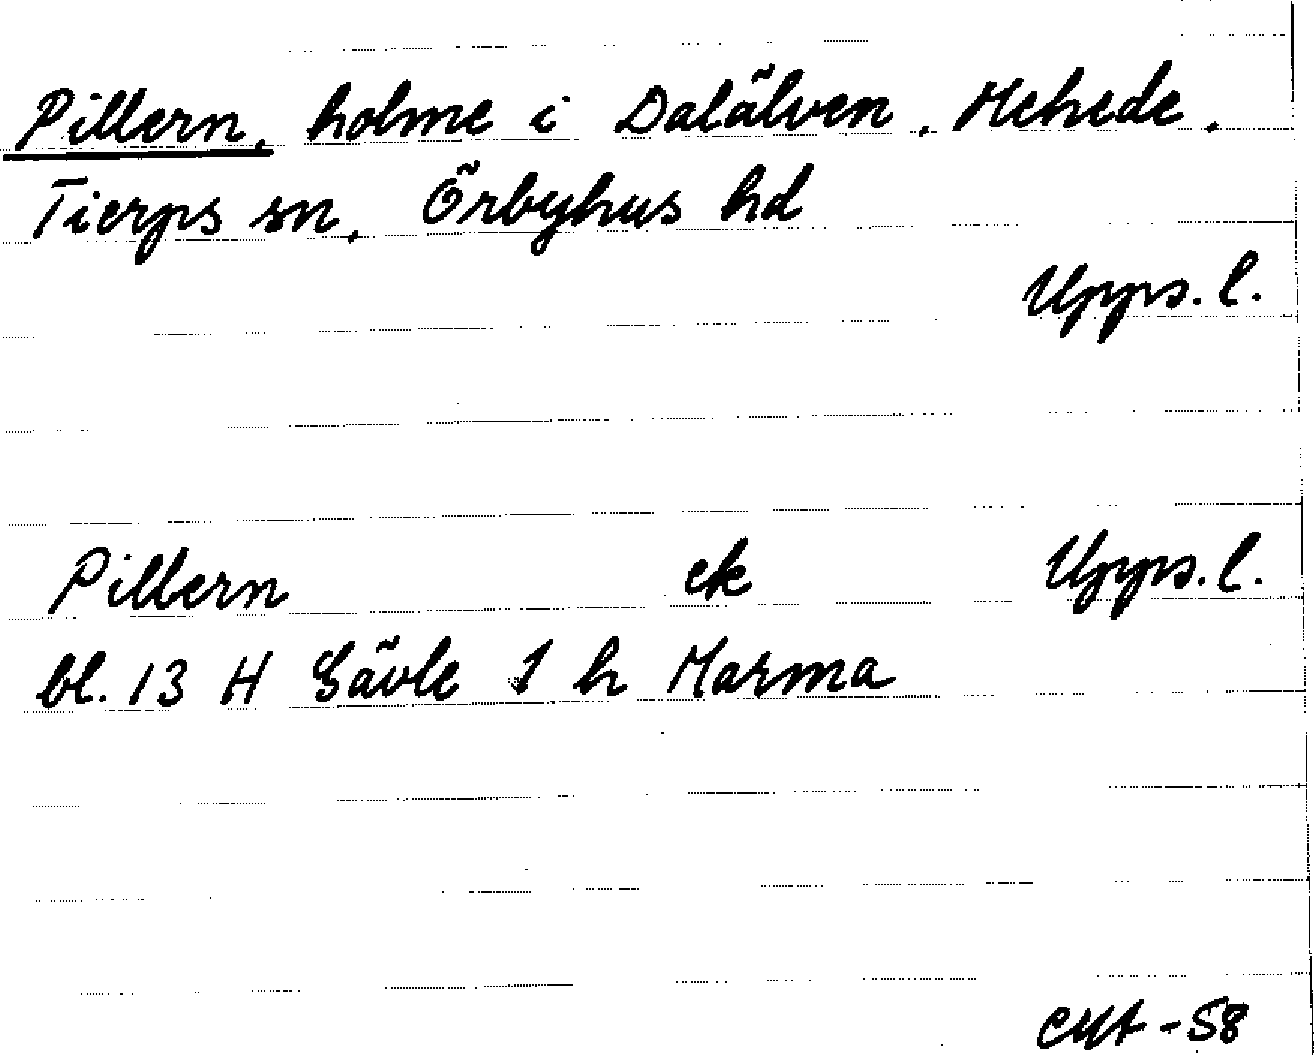 Pillern, holme i Dalälven, Mehede,
Tierps sn, Örbyhus hd
Upps. l.
Pillern ek Upps. l.
bl. 13 H Gävle 1 h Marma
-58